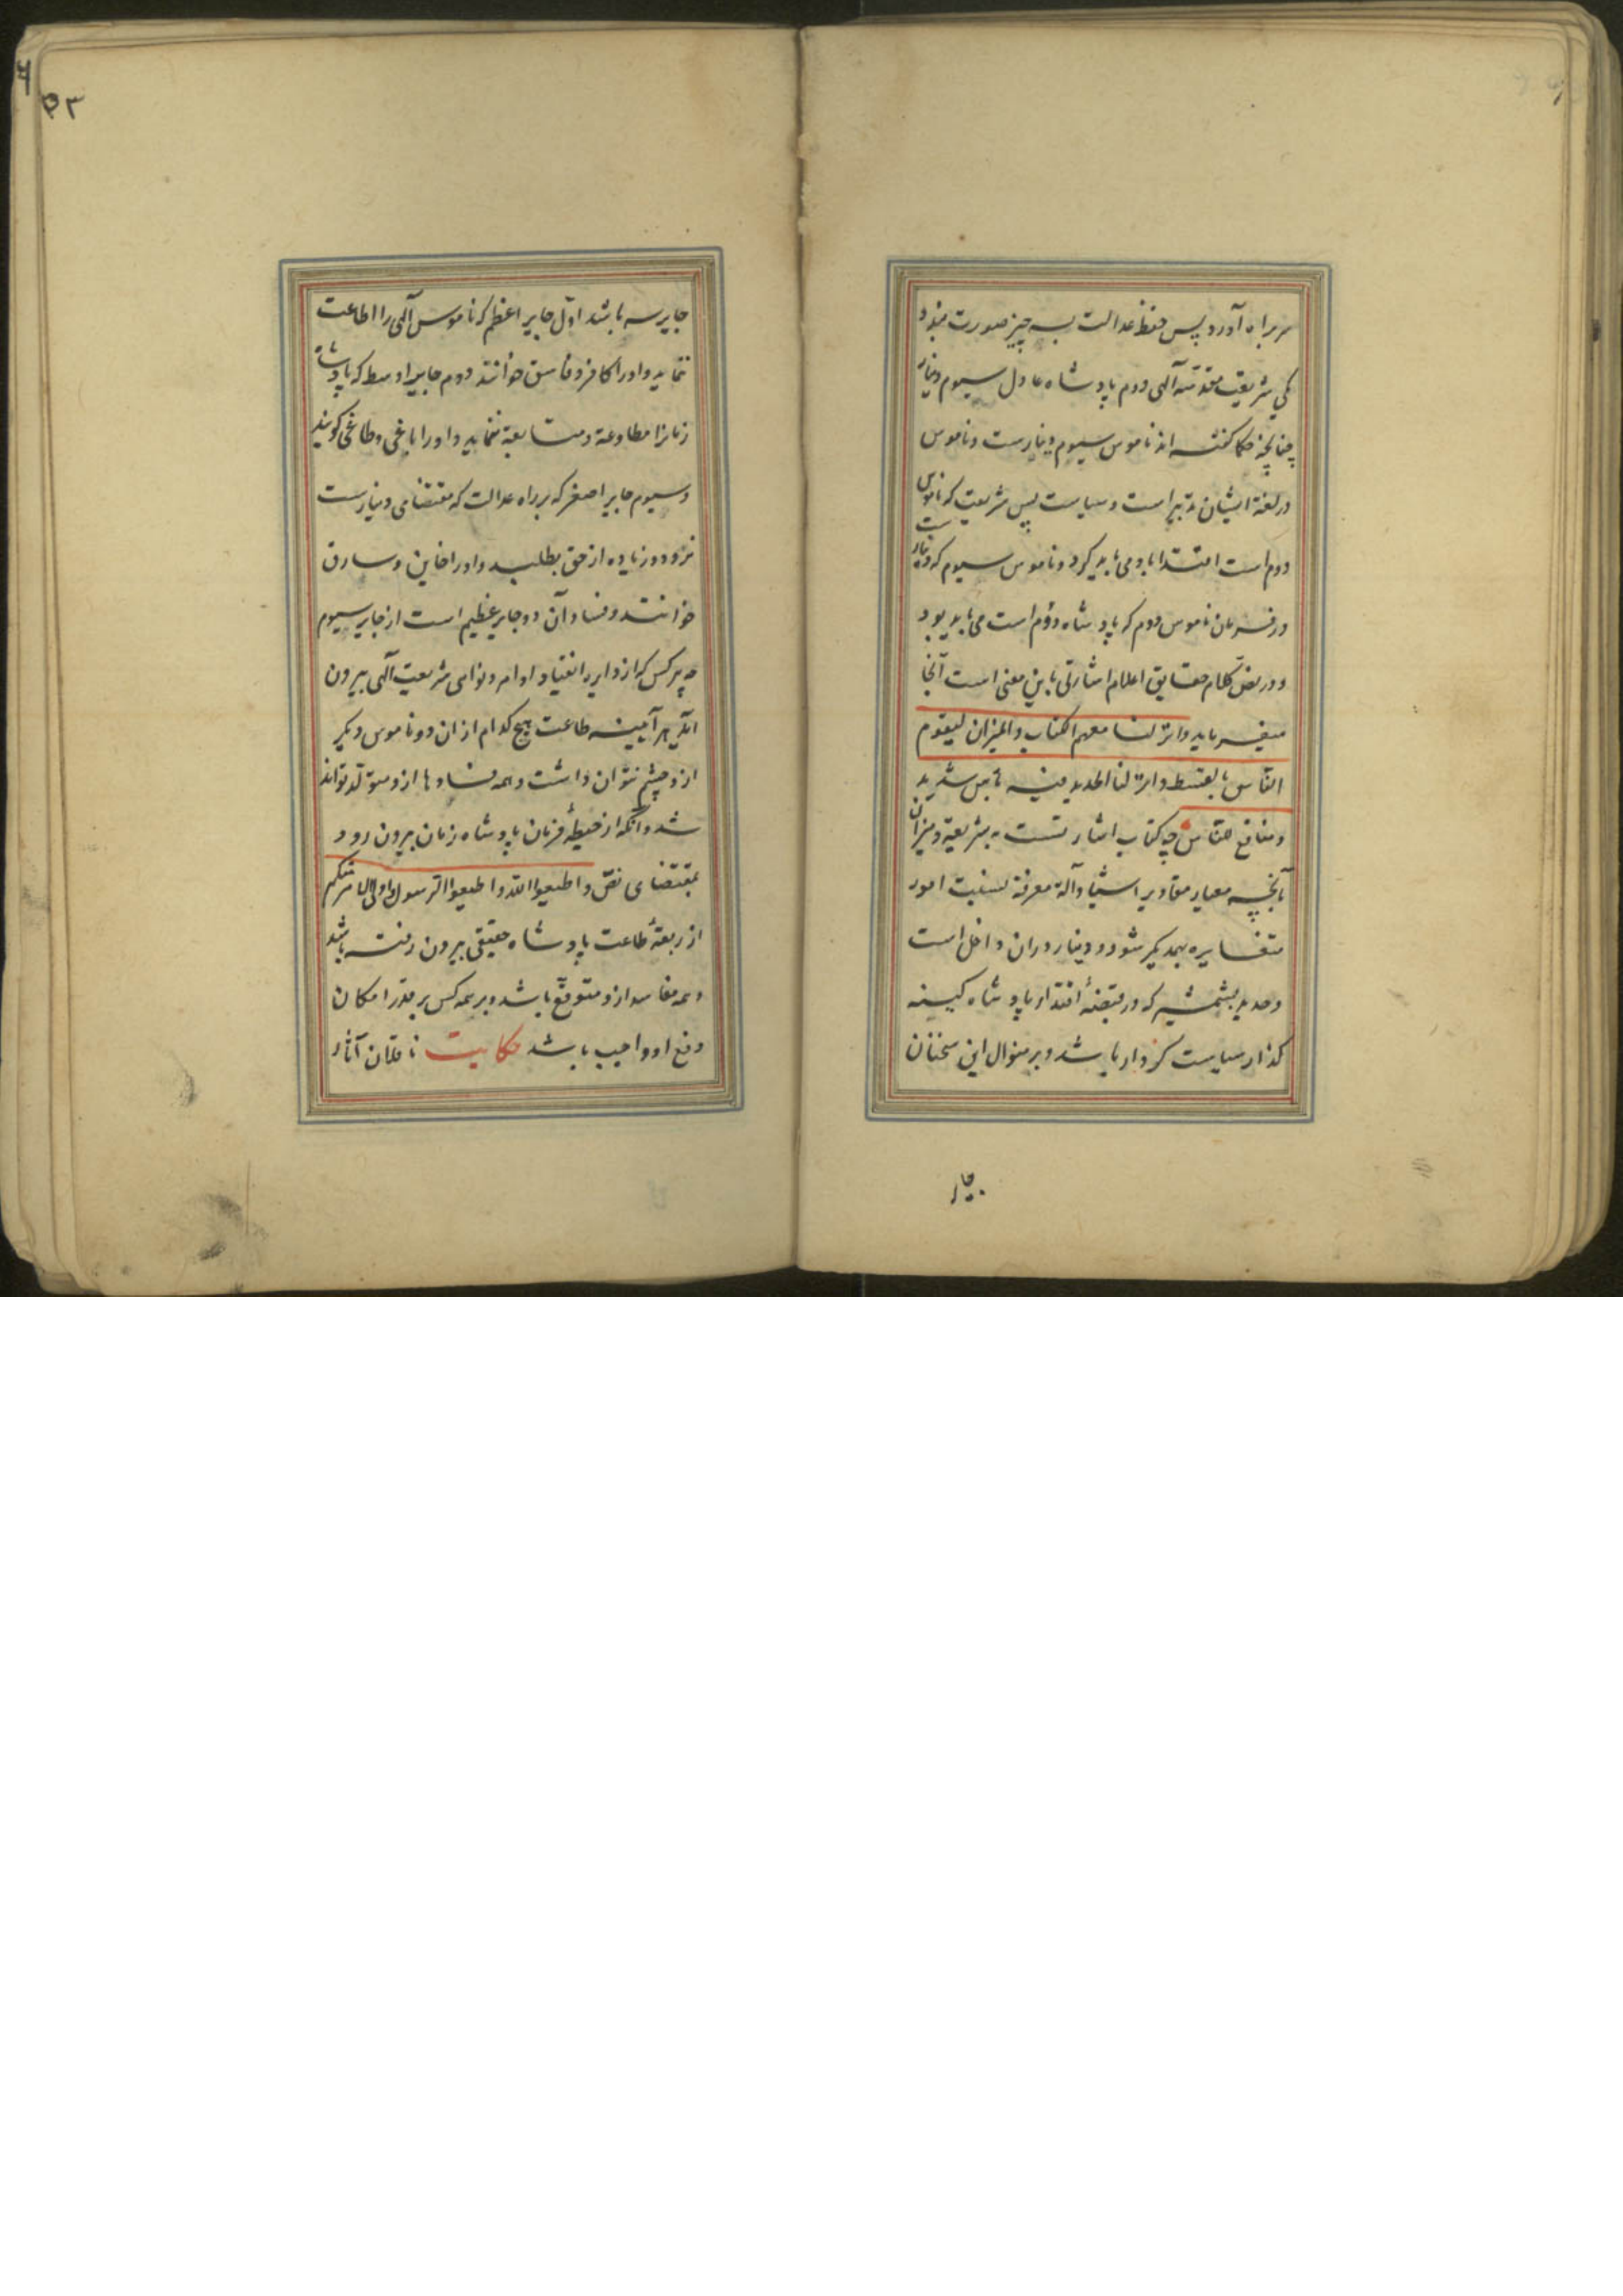 سر براه آورد پس حفظ عدالت بسه چیز صورت بندد
یکی شریعت مقدسه آلهی دوم پادشاه عادل سیوم دینار
چنانچه حکما گفته اند ناموس سیوم دینارست و ناموس
در لغة ایشان تدبیر است و سیاست پس شریعت که ناموس
دوم است اقتدا باو می باید کرد و ناموس سیوم که دینار ست
در فرمان ناموس دوم که پادشاه دوم است می باید بود
و در نص کلام حقایق اعلام اشارتی باین معنی است آنجا
میفرماید و انزلنا معهم الکتاب والمیزان لیقوم
الناس بالقسط وانزلنا الحدید فیه باس شدید
ومنافع للناس چه کتاب اشار تست به شریعة و میزان
بآنچه معیار مقادیر اشیا و آلة معرفة نسبت امور
متغایره بهمدیگر شود و دینار دران داخل است
و حدید بشمشیر که در قبضهٔ اقتدار پادشاه کینه
گذار سیاست کردار باشد و بر منوال این سخنان
جایر
۵۳
جایر سه باشد اول جایر اعظم که ناموس آلهی را اطاعت
ننماید و او را کافر و فاسق خوانند دوم جایر اوسط که پادشاه
زمانرا مطاوعة و متابعة ننماید و او را یاغی و طاغی گویند
و سیوم جایر اصغر که بر راه عدالت که مقتضای دینارست
نرود و زیاده از حق بطلبد و او را خاین و سارق
خوانند و فساد آن دو جایر عظیم است از جایر سیوم
چه هر کس که از دایره انقیاد اوامر و نواهی شریعت آلهی بیرون
آید هر آینه طاعت هیچ کدام از ان دو ناموس دیگر
ازو چشم نتوان داشت و همه فسادها ازو متولد تواند
شد و آنکه از حیطهٔ فرمان پادشاه زمان بیرون رود
بمقتضای نص و اطیعوا الله و اطیعوا الرسول و اولی الامر منکم
از ربقهٔ طاعت پادشاه حقیقی بیرون رفته باشد
و همه مفاسد ازو متوقع باشد و بر همه کس بر قدر امکان
دفع او واجب باشد حکایت ناقلان آثار